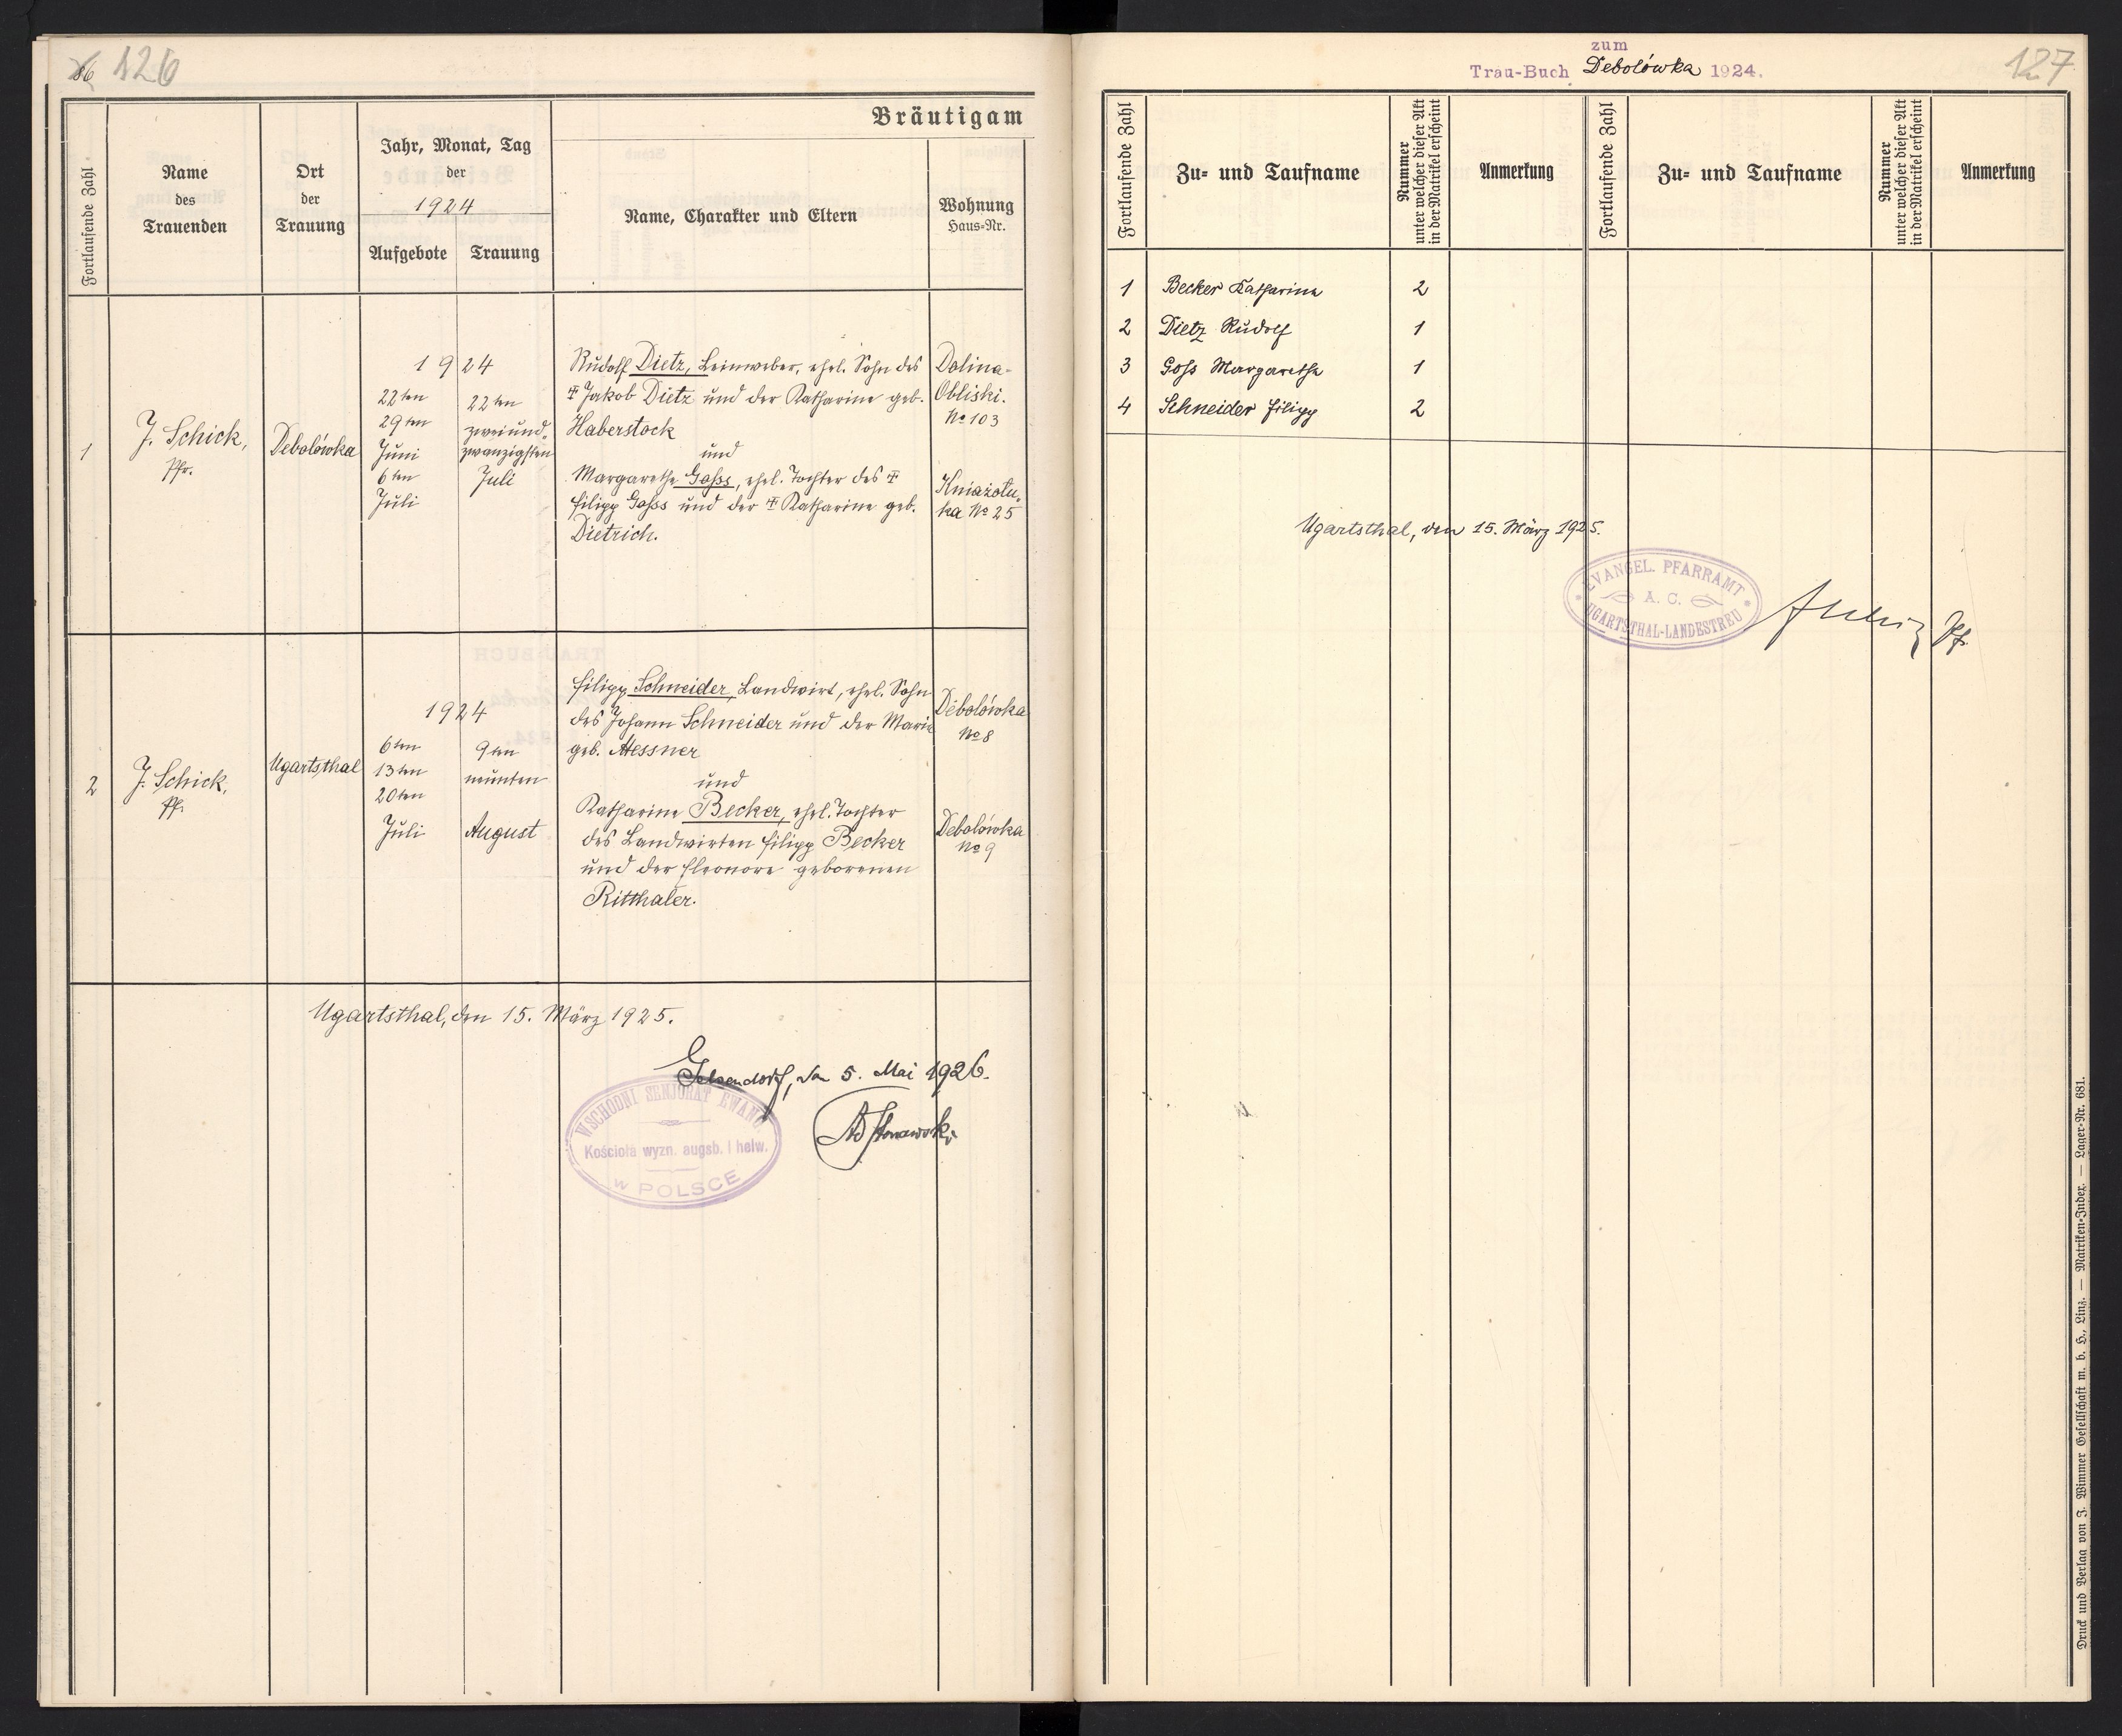 126
Bräutigam
Fortlaufende Zahl
Name
des
Trauenden
Ort
der
Trauung
Jahr, Monat, Tag
der
1924
Aufgebote
Trauung
Name, Charakter und Eltern
Wohnung
Haus-Nr.
1
J. Schick,
Pfr.
Debolówka
1924
22ten
29ten
Juni
6ten
Juli
22ten
zweiund-
zwanzigsten
Juli
Rudolf Dietz, Leinweber, ehel. Sohn des
Jakob Dietz und der Katharine geb.
Haberstock
und
Margarethe Gohs, ehel. Tochter des
Filipp Gohs und der Katharine geb.
Dietrich.
Dolina-
Obliski.
No 103
Kniażolu-
ka No 25
2
J. Schick,
Pfr.
Ugartsthal
1924
6ten
13ten
20ten
Juli
9ten
neunten
August
Filipp Schneider, Landwirt, ehel. Sohn
des Johann Schneider und der Marie
geb. Messner
und
Katharine Becker, ehel. Tochter
des Landwirten Filipp Becker
und der Eleonore geborenen
Ritthaler.
Debolówka
No 8
Debolówka
No 9
Ugartsthal, den 15. März 1925.
Gelsendorf, den 5. Mai 1926.
WSCHODNI SENJORAT EWANG.
Kościoła wyzn. augsb. i helw.
w POLSCE
zum
Trau-Buch Debolówka 1924.
127
Fortlaufende Zahl
Zu- und Taufname
Nummer
unter welcher dieser Akt
in der Matrikel erscheint
Anmerkung
Fortlaufende Zahl
Zu- und Taufname
Nummer
unter welcher dieser Akt
in der Matrikel erscheint
Anmerkung
1 Becker Katharina 2
2 Dietz Rudolf 1
3 Gohs Margarethe 1
4 Schneider Filipp 2
Ugartsthal, den 15. März 1925.
EVANGEL. PFARRAMT
A. C.
UGARTSTHAL-LANDESTREU
Pf.
Druck und Verlag von J. Wimmer Gesellschaft m. b. H., Linz. — Matriken-Index. — Lager-Nr. 681.